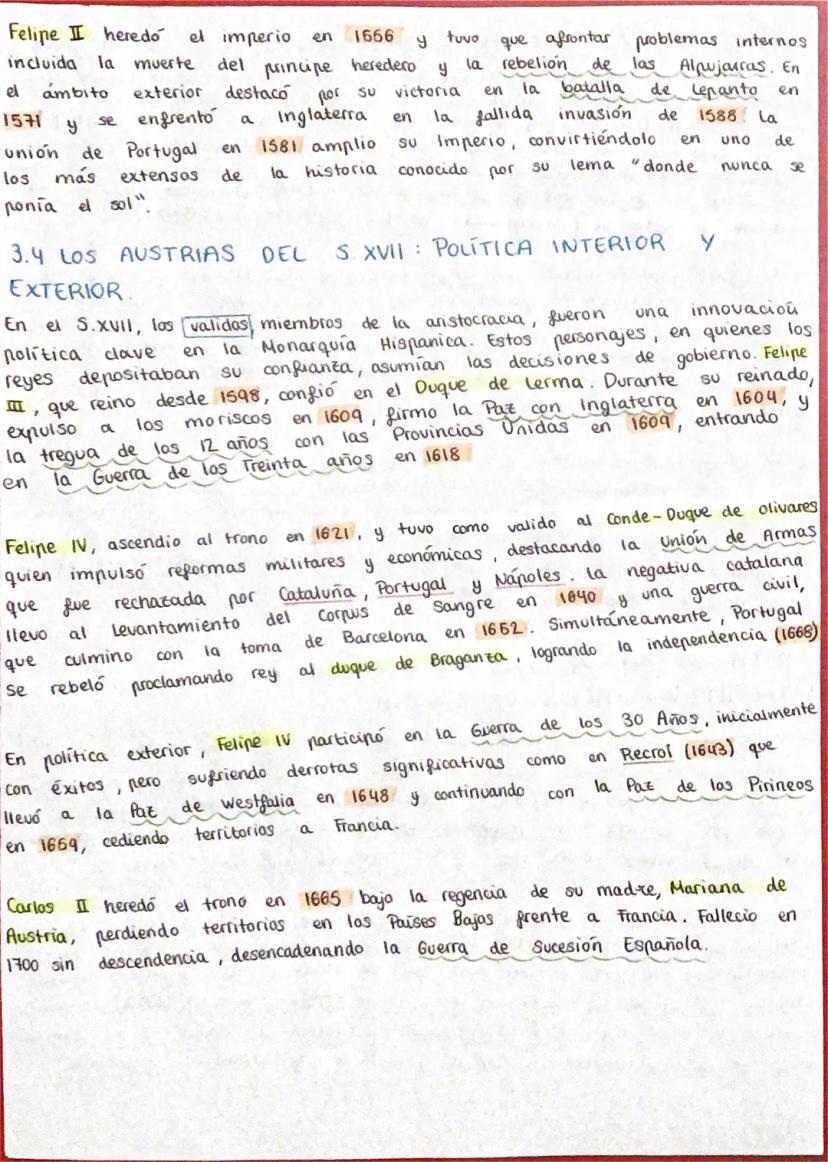 Felipe II heredó el imperio en 1556 y tuvo que afrontar problemas internos
incluida la muerte del principe heredero y la rebelión de las Alpujarras. En
el ámbito exterior destacó por su victoria en la batalla de Lepanto en
1571 y se enfrentó a Inglaterra en la fallida invasión de 1588. La
unión de Portugal en 1581 amplio su Imperio, convirtiéndolo en uno de
los más extensos de la historia conocido por su lema "donde nunca se
ponía el sol".
3.4 LOS AUSTRIAS DEL S. XVII: POLÍTICA INTERIOR Y
EXTERIOR.
En el S.XVII, los validos, miembros de la aristocracia, fueron una innovación
política clave en la Monarquía Hispanica. Estos personajes, en quienes los
reyes depositaban su confianza, asumían las decisiones de gobierno. Felipe
III, que reino desde 1598, confió en el Duque de Lerma. Durante su reinado,
expulso a los moriscos en 1609, firmo la Paz con Inglaterra en 1604, y
la tregua de los 12 años con las Provincias Unidas en 1609, entrando
en la Guerra de los Treinta años en 1618
Felipe IV, ascendio al trono en 1621, y tuvo como valido al Conde-Duque de olivares
quien impulsó reformas militares y económicas, destacando la Unión de Armas
que fue rechazada por Cataluña, Portugal y Nápoles. La negativa catalana
llevo al Levantamiento del Corpus de Sangre en 1640 y una guerra civil,
que culmino con la toma de Barcelona en 1652. Simultáneamente, Portugal
se rebeló proclamando rey al duque de Braganza, logrando la independencia (1668)
En política exterior, Felipe IV participó en la Guerra de los 30 Años, inicialmente
con éxitos, pero sufriendo derrotas significativas como en Recroi (1643) que
llevó a la Paz de Westfalia en 1648 y continuando con la Paz de los Pirineos
en 1659, cediendo territorios a Francia.
Carlos II heredó el trono en 1665 bajo la regencia de su madre, Mariana de
Austria, perdiendo territorios en los Países Bajos frente a Francia. Fallecio en
1700 sin descendencia, desencadenando la Guerra de Sucesión Española.